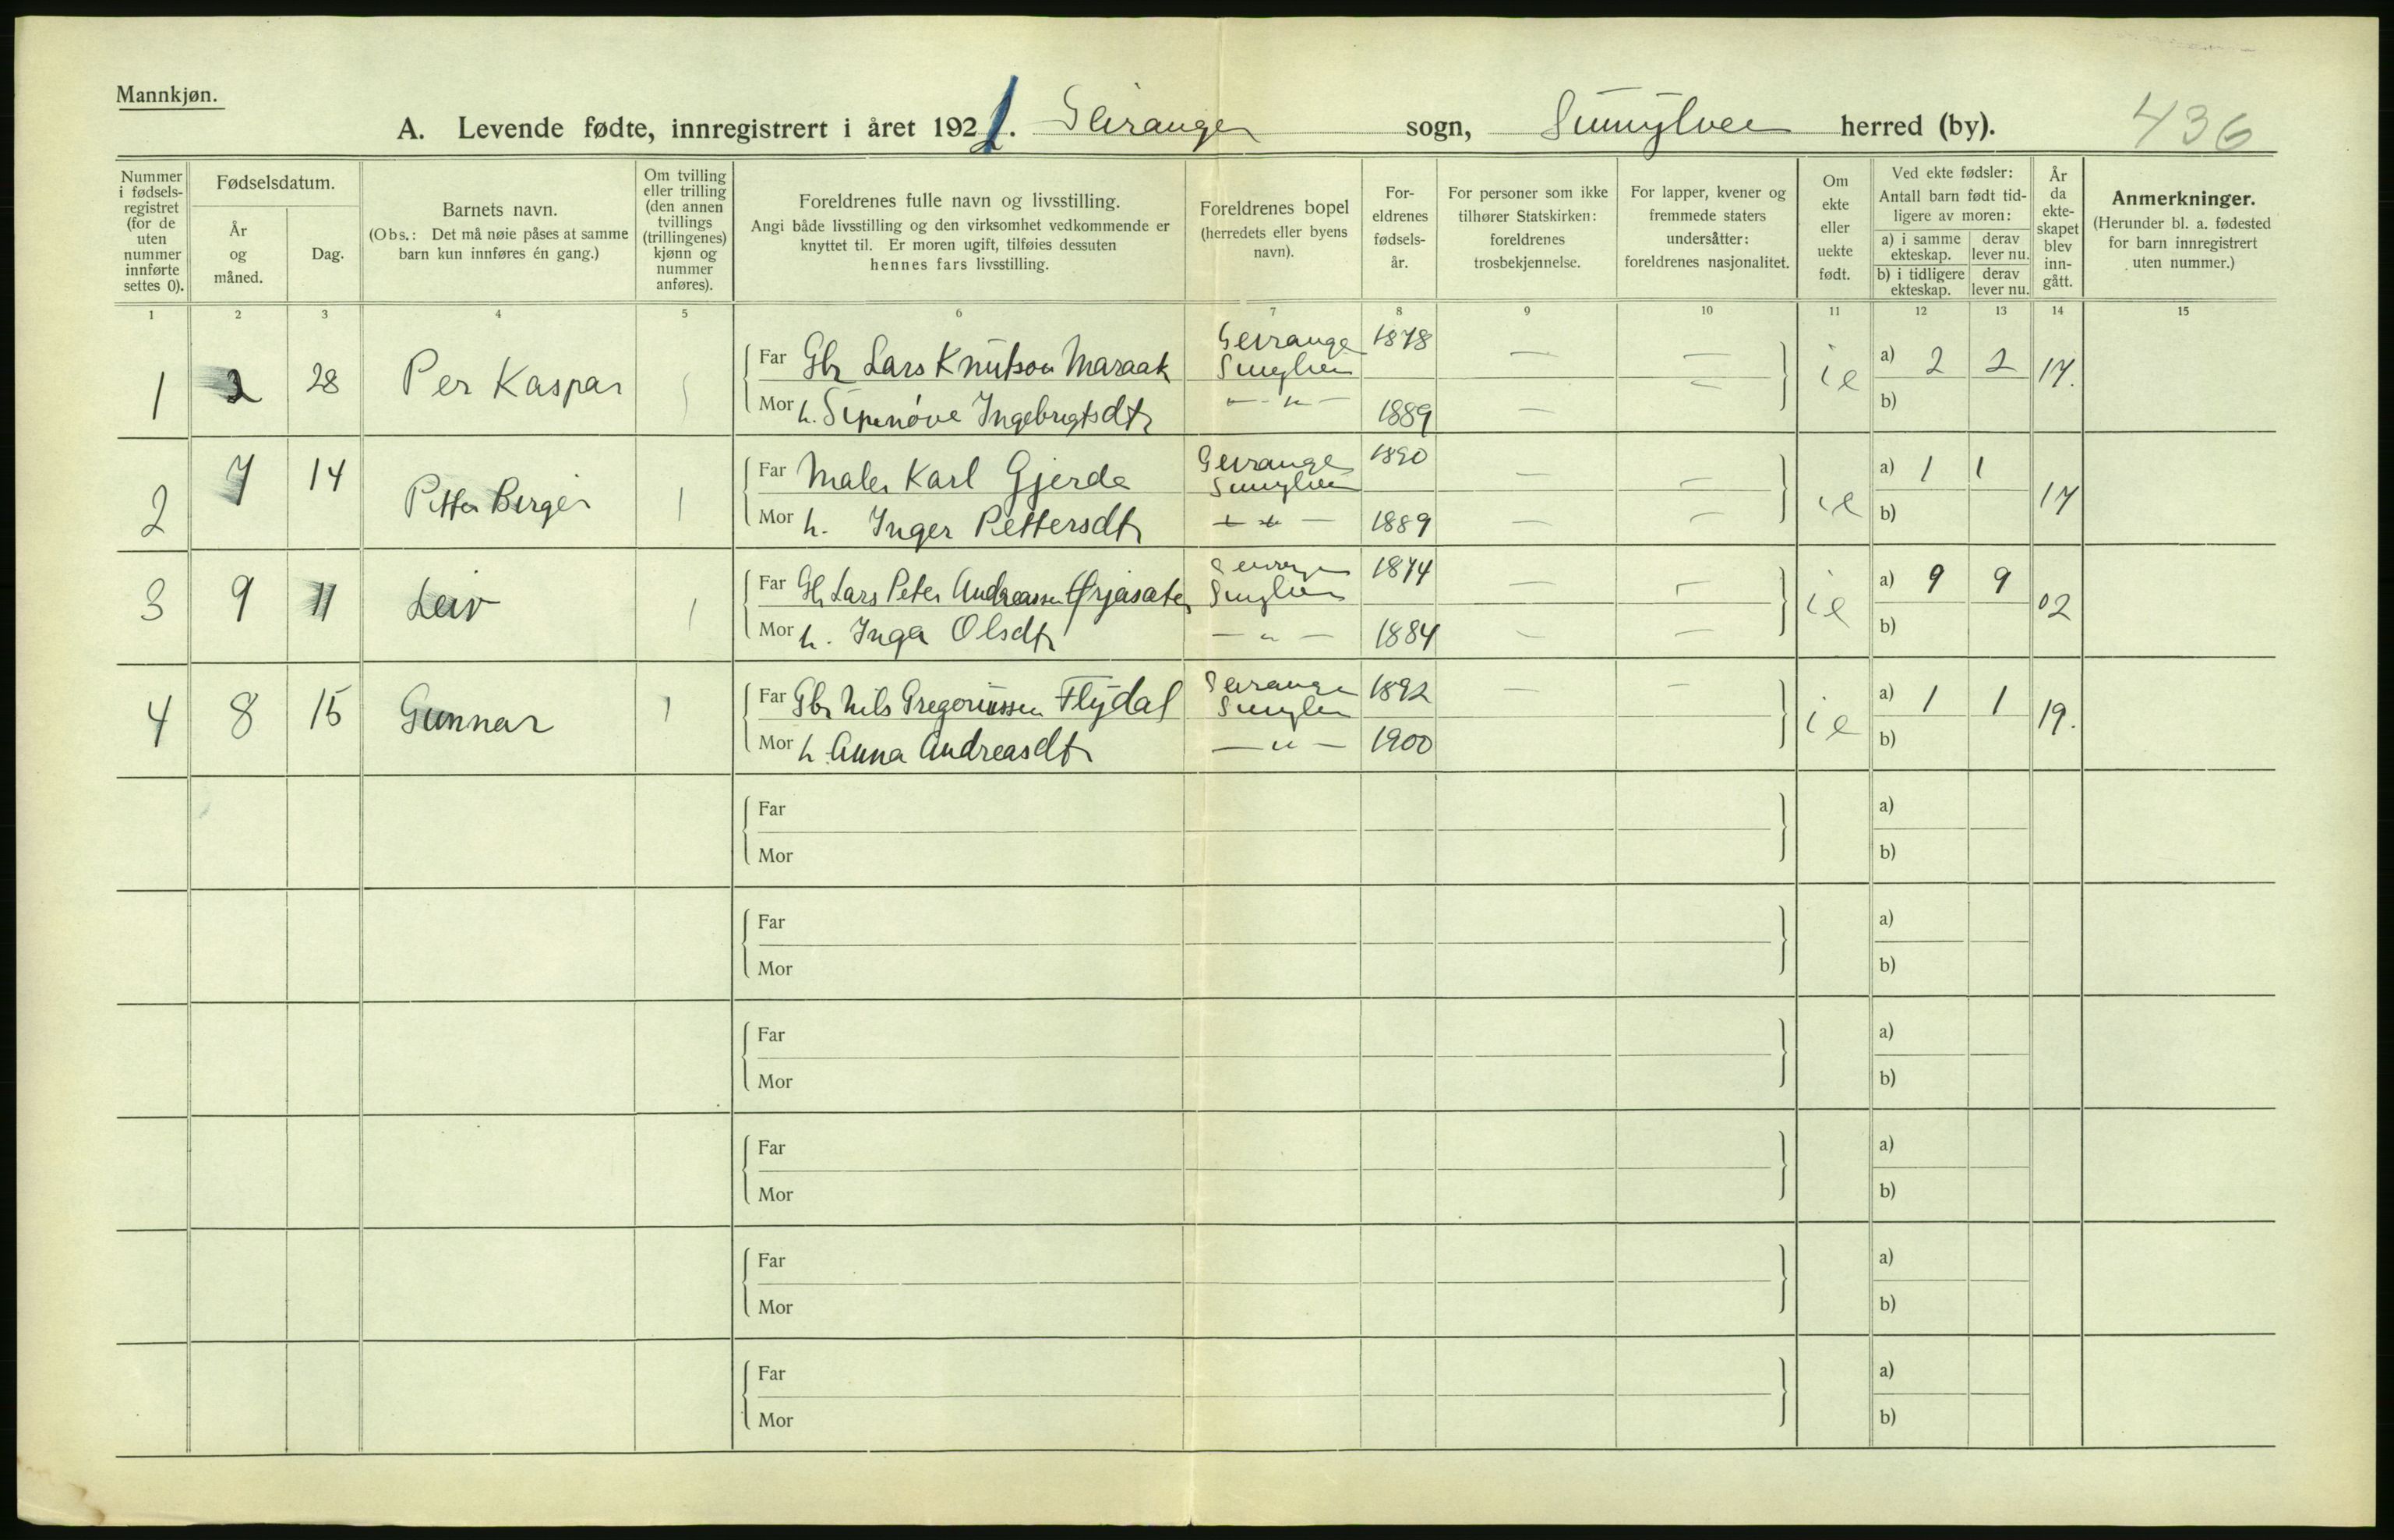 Mannkjøn.
A. Levende fødte, innregistrert i året 1921. Geiranger sogn, Sunnylven herred (by). 436
Nummer i fødselsregistret (for de uten nummer innførte settes 0).
Fødselsdatum.
År og måned.
Dag.
Barnets navn.
(Obs.: Det må nøie påses at samme barn kun innføres én gang.)
Om tvilling eller trilling (den annen tvillings (trillingenes) kjønn og nummer anføres).
Foreldrenes fulle navn og livsstilling.
Angi både livsstilling og den virksomhet vedkommende er knyttet til. Er moren ugift, tilføies dessuten hennes fars livsstilling.
Foreldrenes bopel (herredets eller byens navn).
Foreldrenes fødselsår.
For personer som ikke tilhører Statskirken: foreldrenes trosbekjennelse.
For lapper, kvener og fremmede staters undersåtter: foreldrenes nasjonalitet.
Om ekte eller uekte født.
Ved ekte fødsler:
Antall barn født tidligere av moren:
a) i samme ekteskap. derav lever nu.
b) i tidligere ekteskap. derav lever nu.
År da ekteskapet blev inngått.
Anmerkninger.
(Herunder bl. a. fødested for barn innregistrert uten nummer.)
1 2 3 4 5 6 7 8 9 10 11 12 13 14 15
1 2 28 Per Kaspar 1 Far Gbr Lars Knutson Maraak Geirange Sunylven 1878 — — ie a) 2 2 17.
Mor h. Synnøve Ingebrigtsdtr — " — 1889 — — b)
2 7 14 Petter Birger 1 Far Maler Karl Gjerde Geirange Sunylven 1890 — — ie a) 1 1 17
Mor h. Inger Pettersdtr — " — 1889 — — b)
3 9 11 Leiv 1 Far Gbr Lars Peter Andreassen Ørjasæter Geiranger Sunylven 1874 — — ie a) 9 9 02
Mor h. Inga Olsdtr — " — 1884 — — b)
4 8 15 Gunnar 1 Far Gbr Nils Gregoriussen Flydal Geirange Sunylven 1892 — — ie a) 1 1 19.
Mor h. Anna Andreasdtr — " — 1900 b)
Far a)
Mor b)
Far a)
Mor b)
Far a)
Mor b)
Far a)
Mor b)
Far a)
Mor b)
Far a)
Mor b)